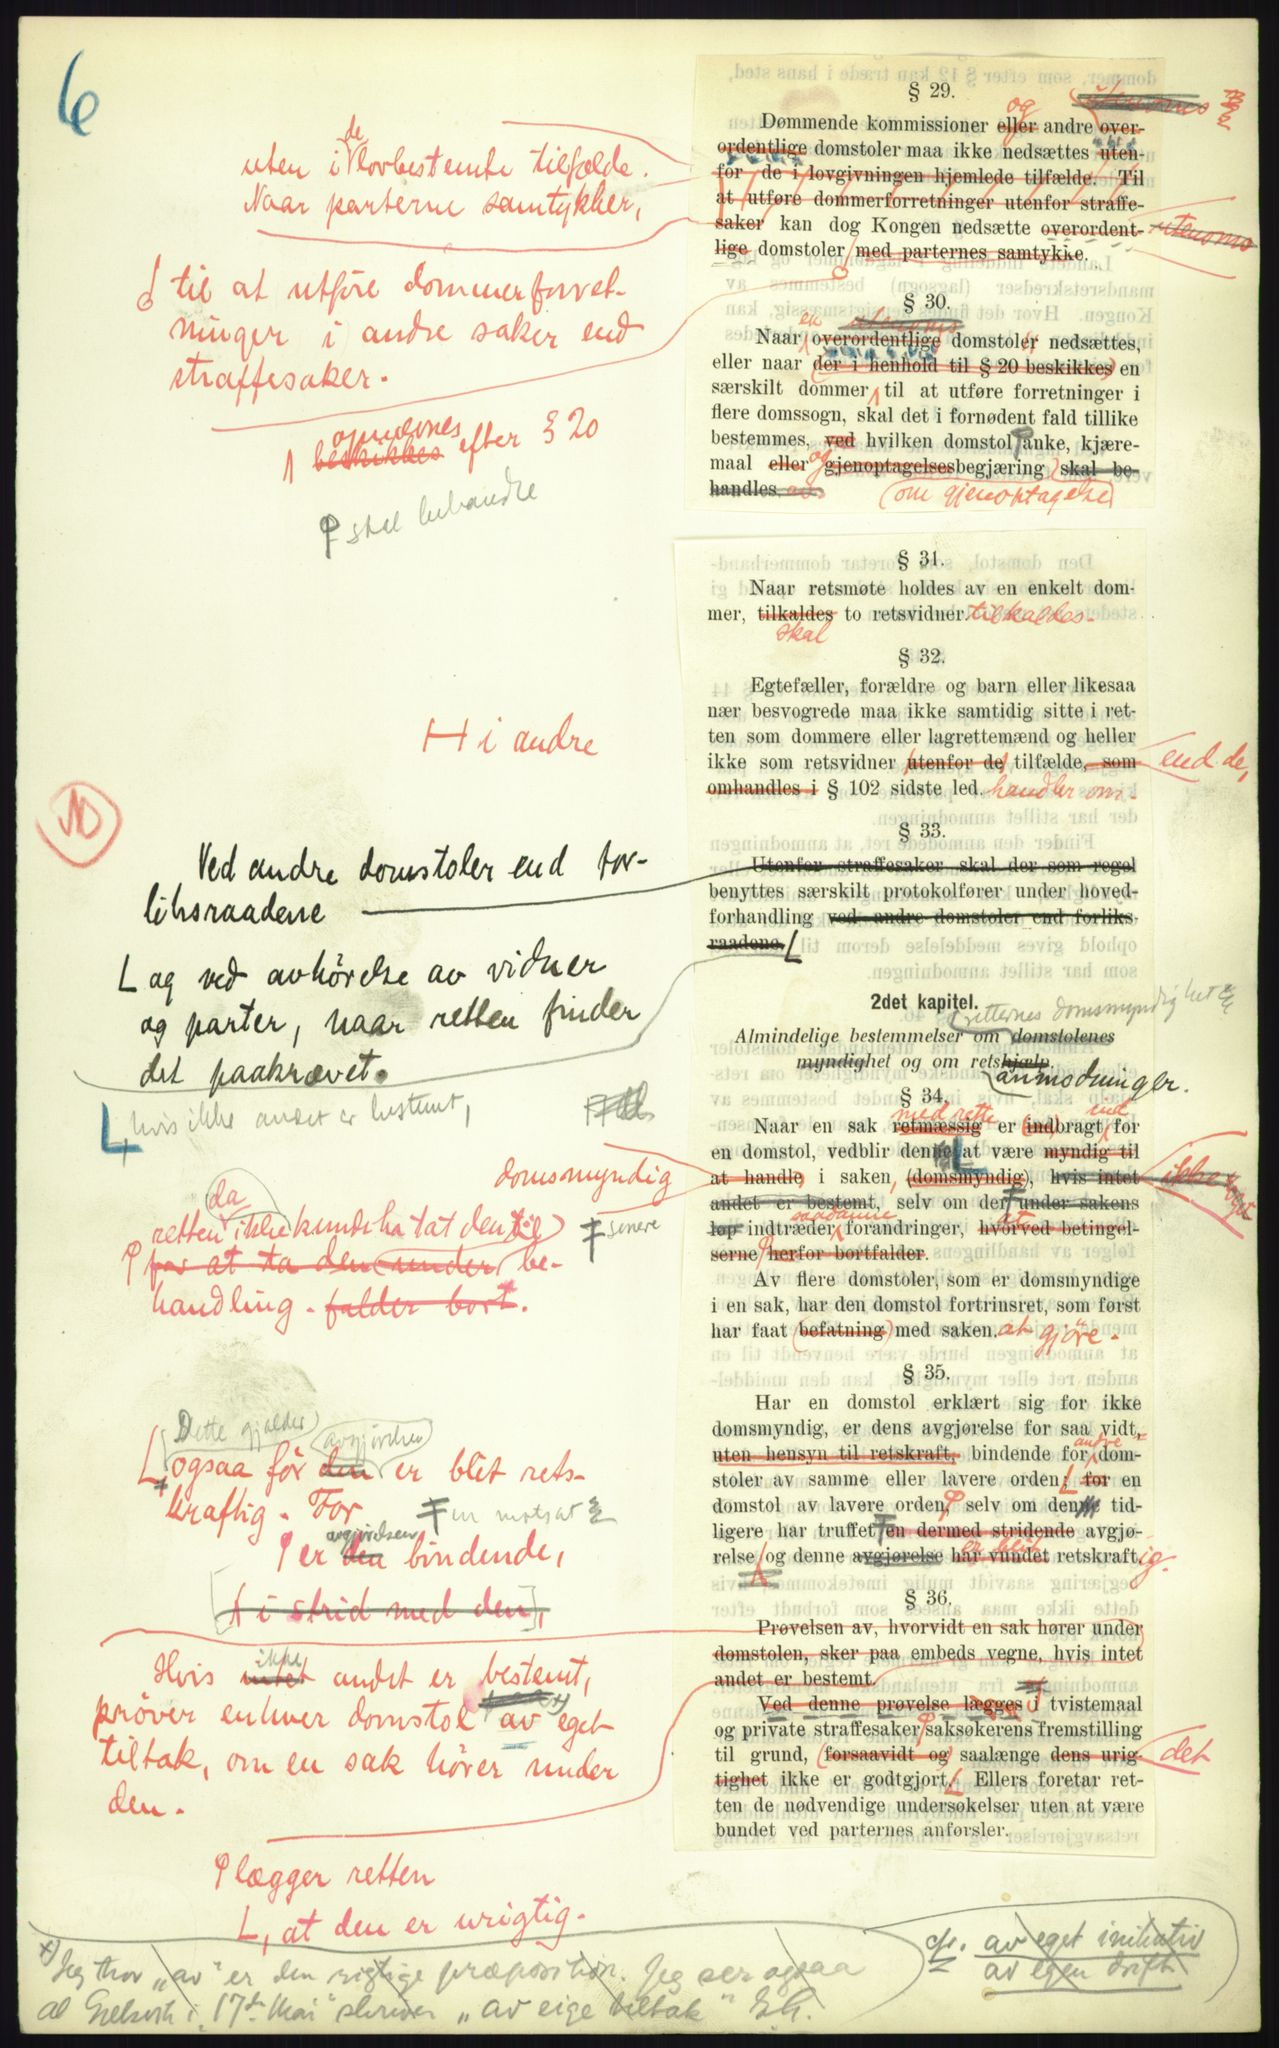 6
§ 29.
og
Dømmende kommissioner eller andre over-
ordentlige domstoler maa ikke nedsættes uten-
for de i lovgivningen hjemlede tilfælde. Til
at utføre dommerforretninger utenfor straffe-
saker kan dog Kongen nedsætte overordent-
lige domstoler med parternes samtykke.
utenoms
de
uten i lovbestemte tilfælde.
Naar parterne samtykker,
til at utføre dommerforret-
ninger i andre saker end
straffesaker.
§ 30.
en utenoms
Naar overordentlige domstoler nedsættes,
eller naar der i henhold til § 20 beskikkes en
særskilt dommer til at utføre forretninger i
flere domssogn, skal det i fornødent fald tillike
bestemmes, ved hvilken domstol anke, kjære-
maal eller og gjenoptagelsesbegjæring skal be-
handles
om gjenoptagelse
opnævnes
beskikkes efter § 20
skal behandle
§ 31.
Naar retsmøte holdes av en enkelt dom-
mer, tilkaldes to retsvidner. tilkaldes.
skal
§ 32.
Egtefæller, forældre og barn eller likesaa
nær besvogrede maa ikke samtidig sitte i ret-
ten som dommere eller lagrettemænd og heller
ikke som retsvidner utenfor de tilfælde, som end de,
omhandles i § 102 sidste led. handler om.
i andre
§ 33.
Utenfor straffesaker skal der som regel
benyttes særskilt protokolfører under hoved-
forhandling ved andre domstoler end forliks-
raadene.
Ved andre domstoler end for-
liksraadene
og ved avhörelse av vidner
og parter, naar retten finder
det paakrævet.
2det kapitel.
retternes domsmyndighet
Almindelige bestemmelser om domstolenes
myndighet og om retshjælp.
anmodninger.
§ 34.
med rette ind
Naar en sak retmæssig er indbragt for
en domstol, vedblir denne at være myndig til
at handle i saken (domsmyndig), hvis intet
andet er bestemt, selv om der under sakens
løp indtræder saadanne forandringer, hvorved betingel-
serne herfor bortfalder.
Av flere domstoler, som er domsmyndige
i en sak, har den domstol fortrinsret, som først
har faat befatning med saken. at gjöre.
ikke
hvis ikke andet er bestemt,
domsmyndig
senere
da
retten ikke kunde ha tat den til
for at ta den under be-
handling. falder bort.
§ 35.
Har en domstol erklært sig for ikke
domsmyndig, er dens avgjørelse for saa vidt,
uten hensyn til retskraft, bindende for andre dom-
stoler av samme eller lavere orden; for en
domstol av lavere orden, selv om denne tid-
ligere har truffet en dermed stridende avgjø-
relse og denne avgjørelse har vundet retskraft ig.
er blit
Dette gjælder avgjørelsen
ogsaa för den er blit rets-
kraftig. For
en motsat
avgjørelsen
er den bindende,
i strid med den,
§ 36.
Prøvelsen av, hvorvidt en sak hører under
domstolen, sker paa embeds vegne, hvis intet
andet er bestemt.
Ved denne prøvelse lægges i tvistemaal
og private straffesaker saksøkerens fremstilling
til grund, forsaavidt og saalænge dens urig-
tighet ikke er godtgjort. Ellers foretar ret-
ten de nødvendige undersøkelser uten at være
bundet ved parternes anførsler.
det
ikke
Hvis intet andet er bestemt,
pröver enhver domstol av eget
tiltak, om en sak hörer under
den.
lægger retten
, at den er urigtig.
x) Jeg tror „av“ er den rigtige præposition. Jeg ser ogsaa
i „17de Mai“ skriver „av eige tiltak“
av eget initiativ
av egen drift